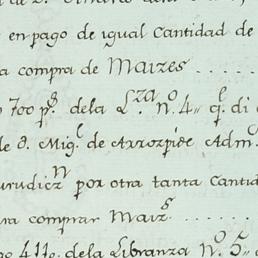 en pago de igual Cantidad de
a compra de Maizes . . . . .
700 p.s dela L.za n.o 4,, q.l di
de d. Mig.l de Arrozpide Adm.
urudiz.n por otra tanta Cantid
ra comprar Maiz.s . . . . . .
411 o. dela Libranza N.o 5,,